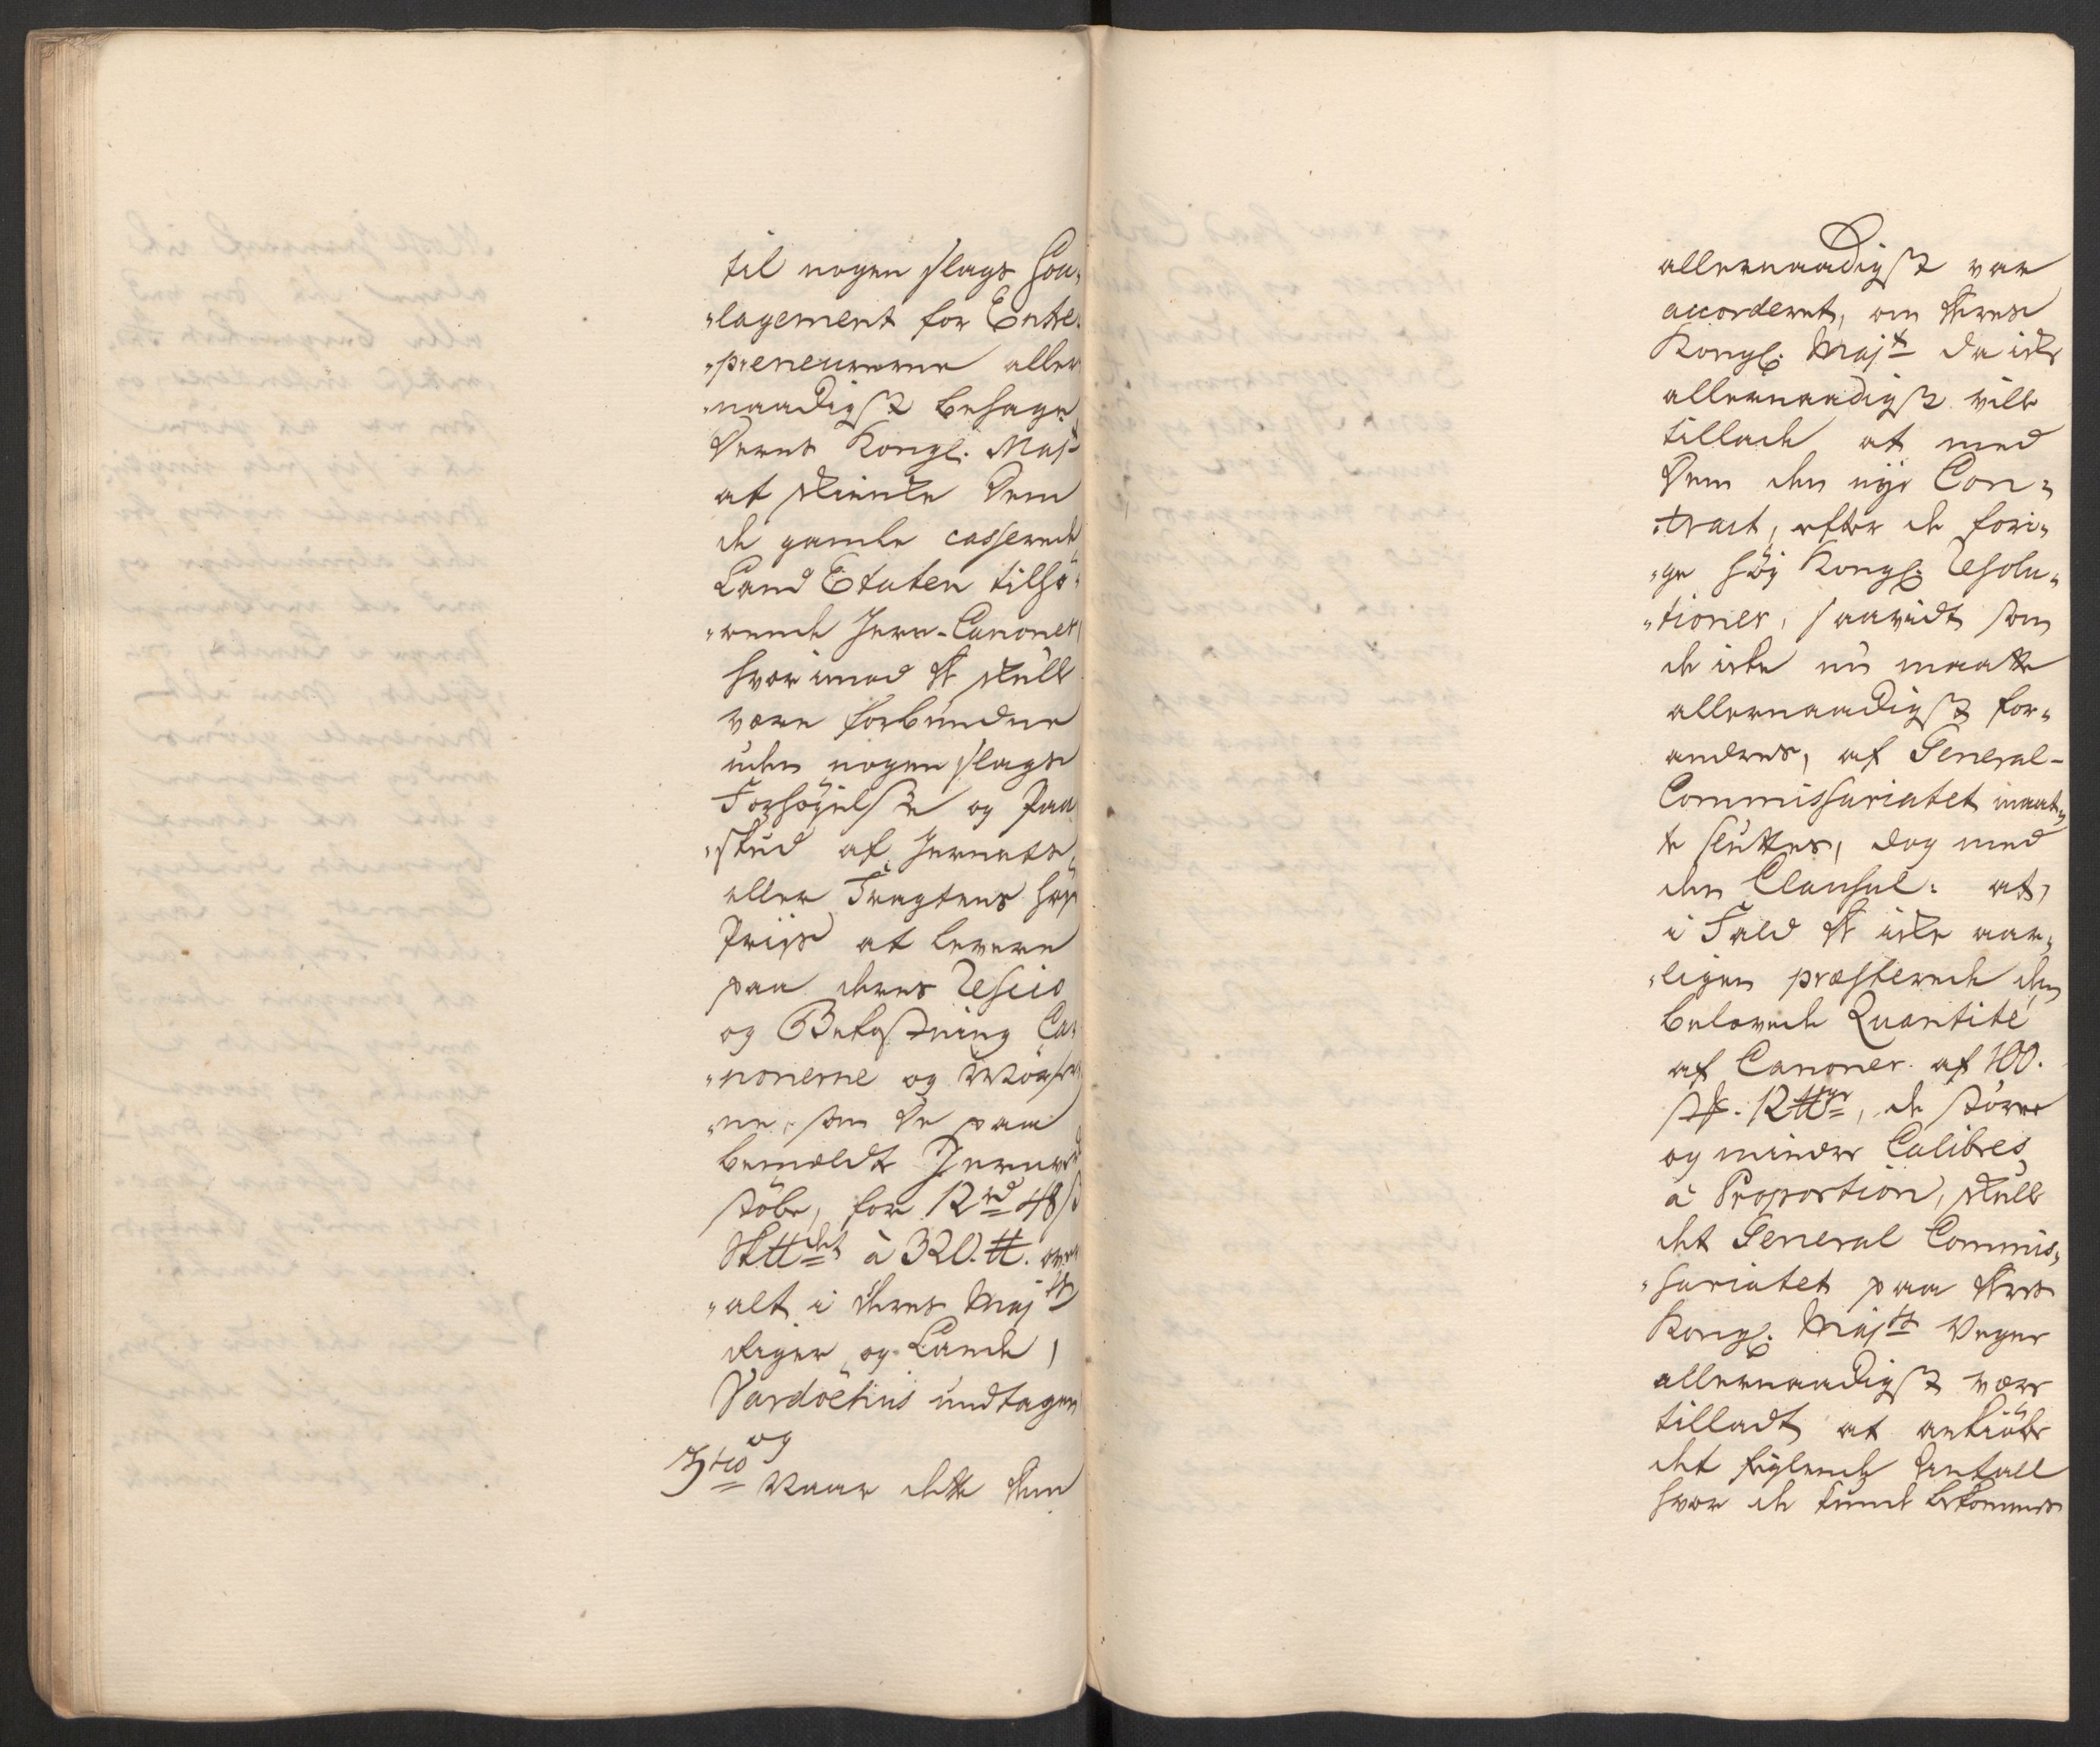 til nogen slags Sou-
"lagement for Entre-
"preneurerne aller
"naadigst behage
Deres Kongl. Majt
at skienke dem
de gamle casserede
Land Etaten tilhö-
"rende Jern-Canoner
hvorimod de skulle
være forbundne
uden nogen slags
Forhöyelse og Paa-
"skud af Jernets
eller Fragtens höye
Priis at levere
paa deres Resico
og Bekostning Ca-
"nonerne og Mörser
"ne, som de paa
bemeldte Jernverk
støbe, for 12 rd 48 s
Sk℔det à 320. ℔. over
"alt i deres Majts
Riger og Lande,
Vardöehuus undtagen
og
3tio Naar dette dem
allernaadigst var
accorderet, om Deres
Kongl. Majt da icke
allernaadigst ville
tillade at med
dem den nye Con-
"tract, efter de fori-
"ge höy Kongl. Resolu-
"tioner, saavidt som
de icke nu maatte
allernaadigst for-
andres, af General-
Commissariatet maat-
te sluttes, dog med
den Clausul: at,
i Fald de icke aar-
"ligen præsterede den
belovede Quantité
af Canoner af 100.
st. 12 ℔ger, de større
og mindre Calibres
à Proportion, skulle
det General Commis-
"sariatet paa Deres
Kongl. Majts Vegne
allernaadigst være
tilladt at ankiöbe
det feylende Antall
hvor de kunde bekommes